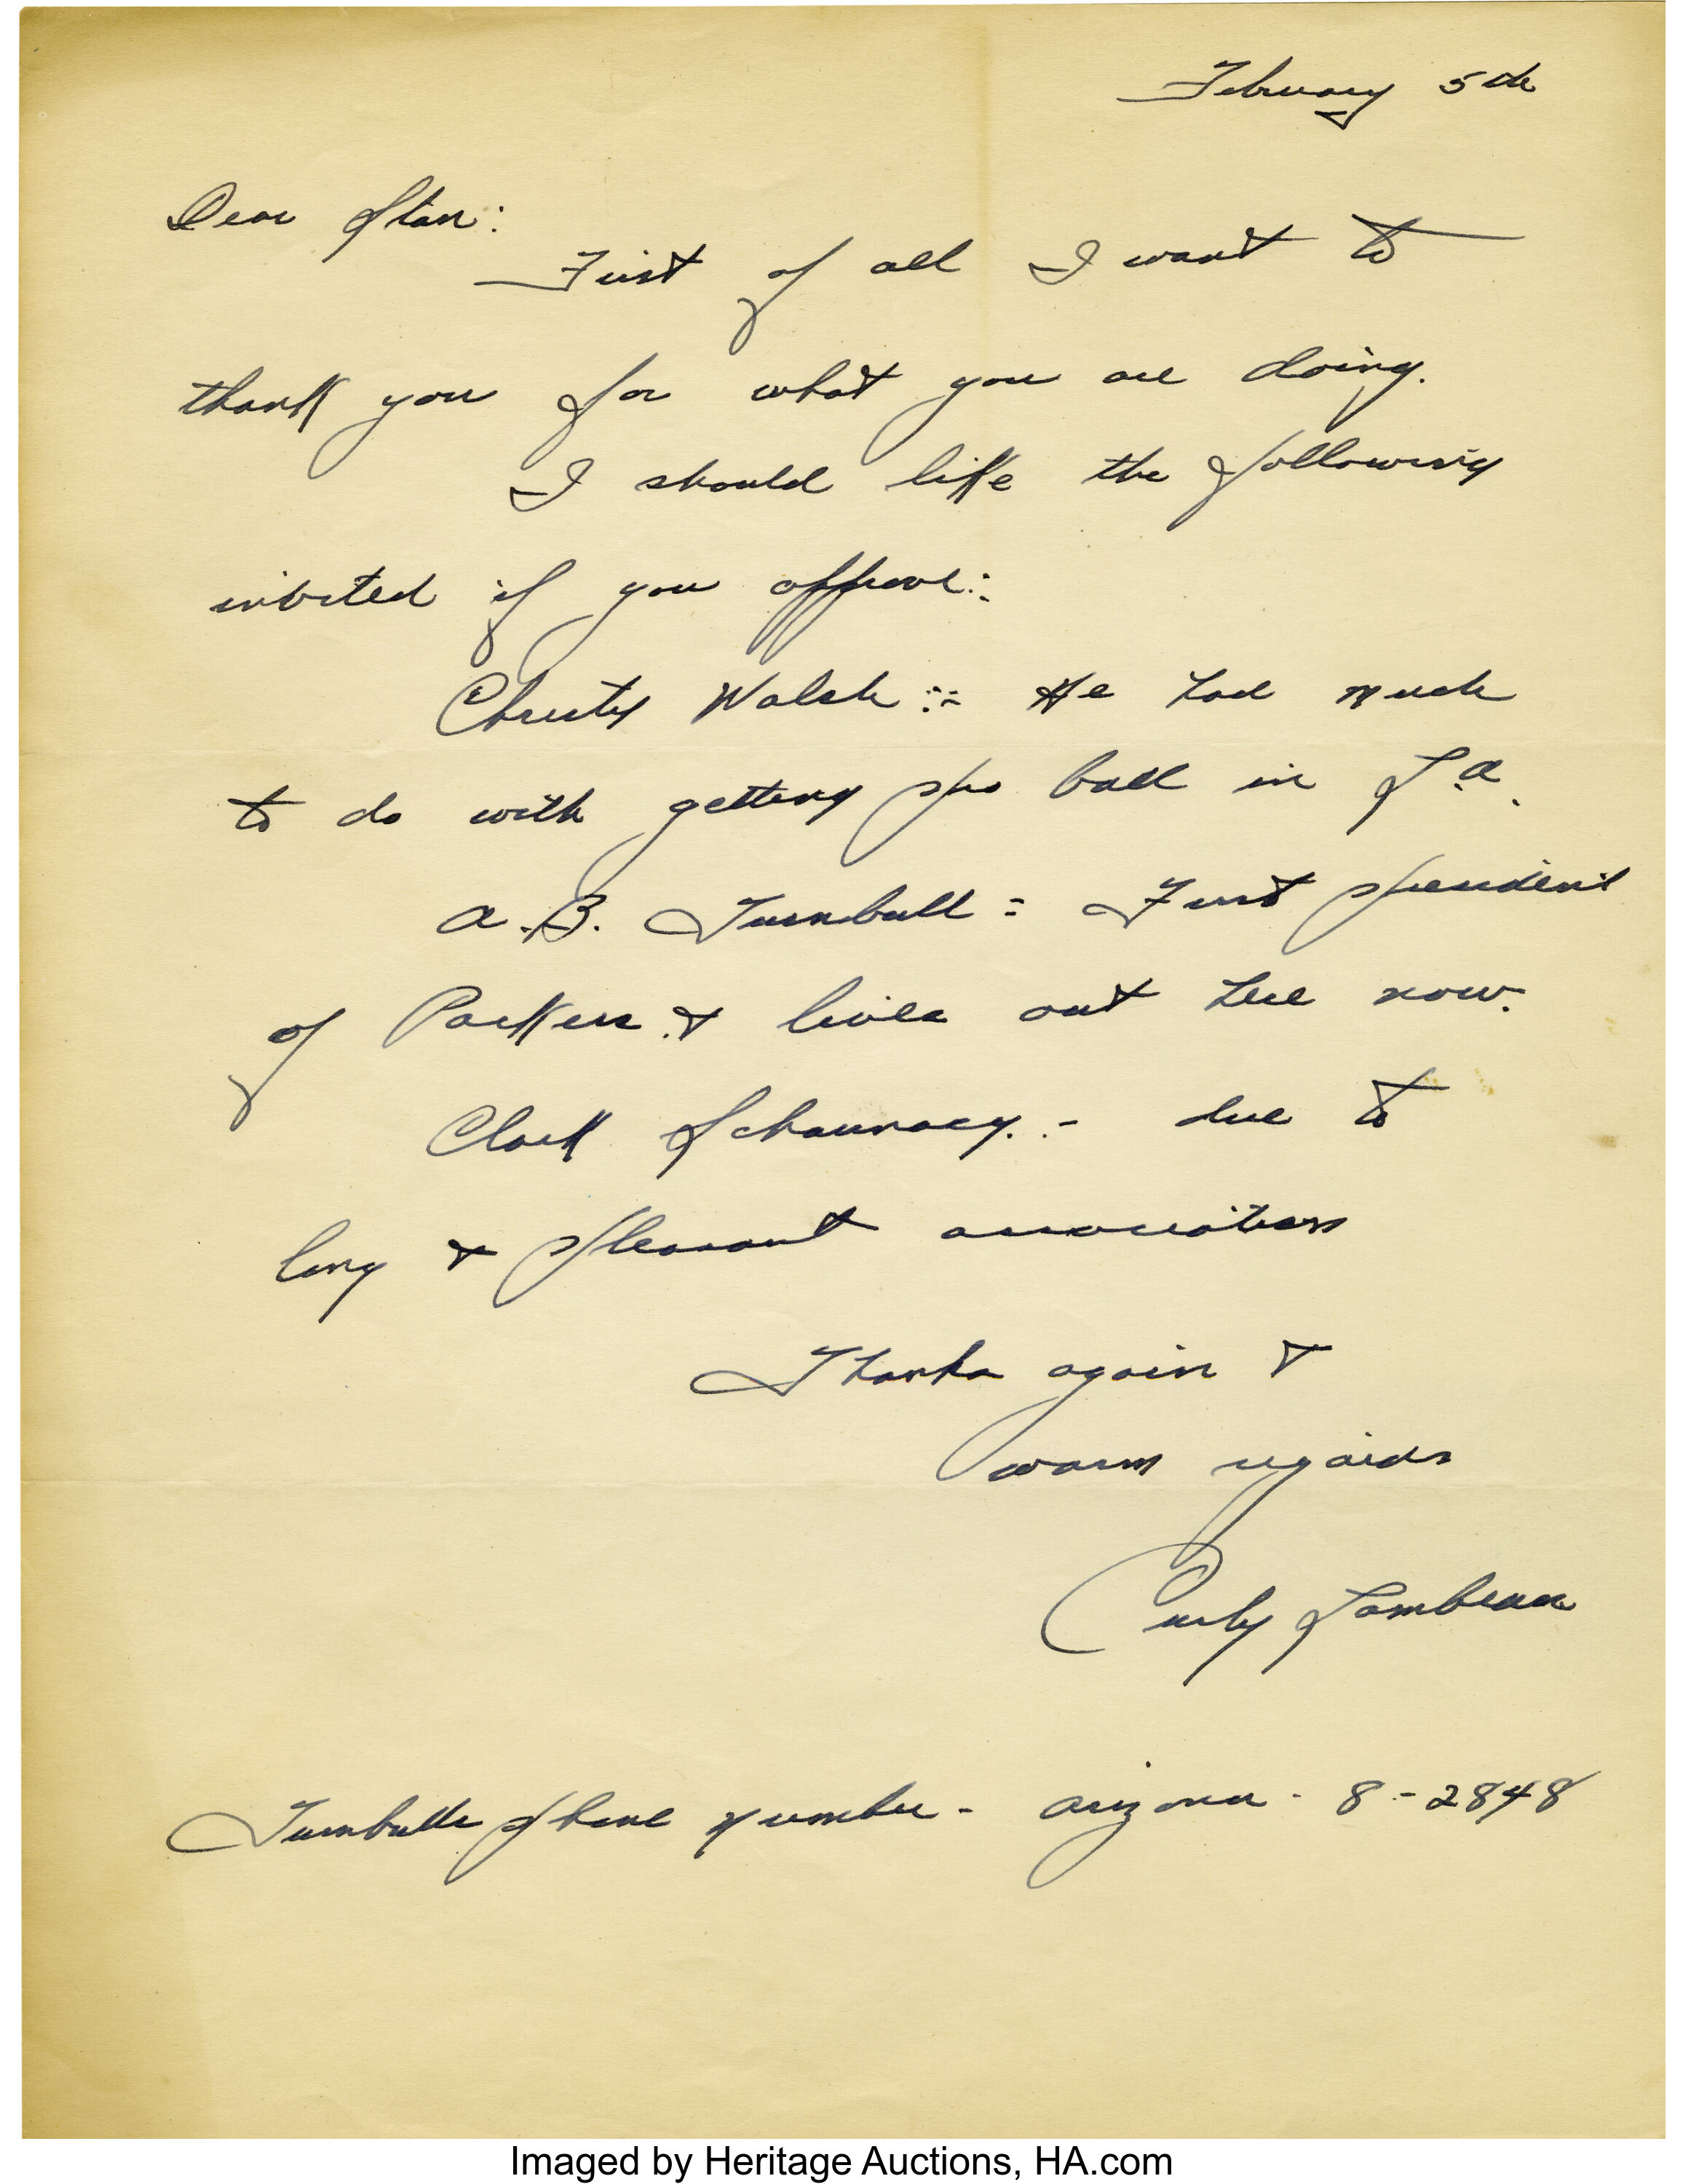 February 5th
Dear Stan:
First of all I want to
thank you for what you are doing.
I should like the following
invited if you approve:
Christy Walsh:- He had much
to do with getting pro ball in L.A.
A.B. Turnbull - First president
of Packers & lives out here now.
Clark Schaunacy. - due to
long & pleasant association
Thanks again &
warm regards
Curly Lambeau
Turnbulls phone number - Arizona - 8-2848
Imaged by Heritage Auctions, HA.com